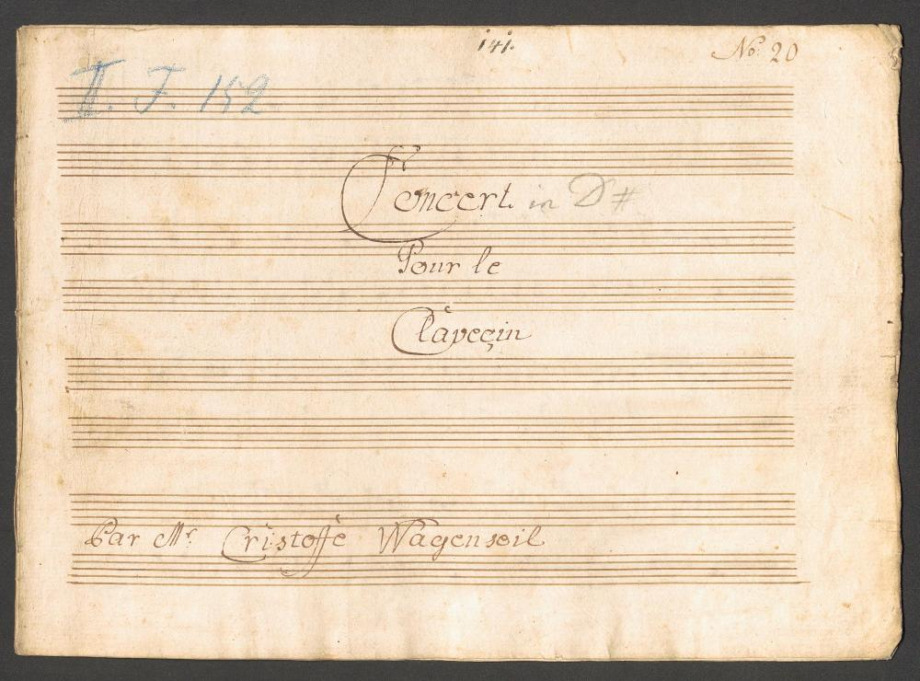 141.
No: 20
II. F. 152
Concert. in D#
Pour le
Clavecin
Par Mr. Cristoffe Wagenseil